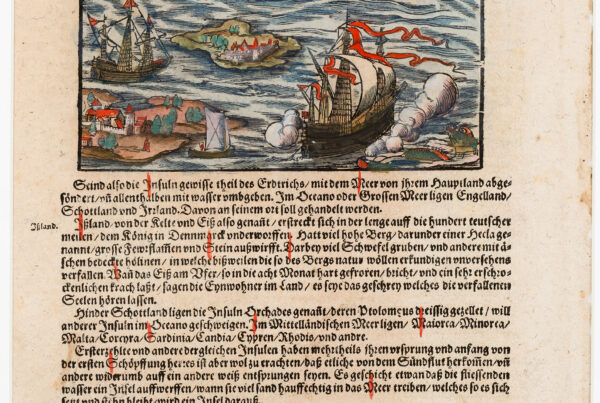 Seind also die Insuln gewisse theil des Erdtrichs/ mit dem Meer von jhrem Hauptland abge-
söndert/ vñ allenthalben mit wasser vmbgeben. Im Oceano oder Grossen Meer ligen Engelland/
Schottland vnd Irꝛland. Davon an seinem ort soll gehandelt werden.
Ißland. Ißland/ von der Kelte vnd Eiß also genañt/ erstreckt sich in der lenge auff die hundert teutscher
meilen/ dem König in Dennmarck vnderworffen. Hatt viel hohe Berg/ darunder einer Hecla ge-
nannt/ grosse Fewrflam̃en vnd Stein außwirfft. Darbey viel Schwefelgruben/ vnd andere mit ä-
schen bedeckte hölinen/ in welche bißweilen die so des Bergs natur wöllen erkundigen vnversehens
verfallen. Wañ das Eiß am Vfer/ so in die acht Monat hart gefroren/ bricht/ vnd ein sehr erschro-
ckenlichen krach laßt/ sagen die Eynwohner im Land/ es seye das geschrey welches die verfallenen
Seelen hören lassen.
Hinder Schottland ligen die Insuln Orchades genañt/ deren Ptolomęus dreissig gezellet/ will
anderer Insuln im Oceano geschweigen. Im Mittelländischen Meer ligen/ Maiorca/ Minorca/
Malta/ Corcyra/ Sardinia/ Candia/ Cypren/ Rhodis/ vnd andre.
Ersterzehlte vnd andere dergleichen Insulen haben mehrtheils jhren vrsprung vnd anfang von
der ersten Schöpffung her: es ist aber wol zu erachten/ daß etliche von dem Sündflut herkom̃en/ vñ
andere widerumb auff ein andere weiß entsprungen seyen. Es geschicht etwan daß die fliessenden
wasser ein Insel auffwerffen/ wann sie viel sand hauffechtig in das Meer treiben/ welches so es sich
setzt vnd still bleibt/ wird ein Insel darauß.